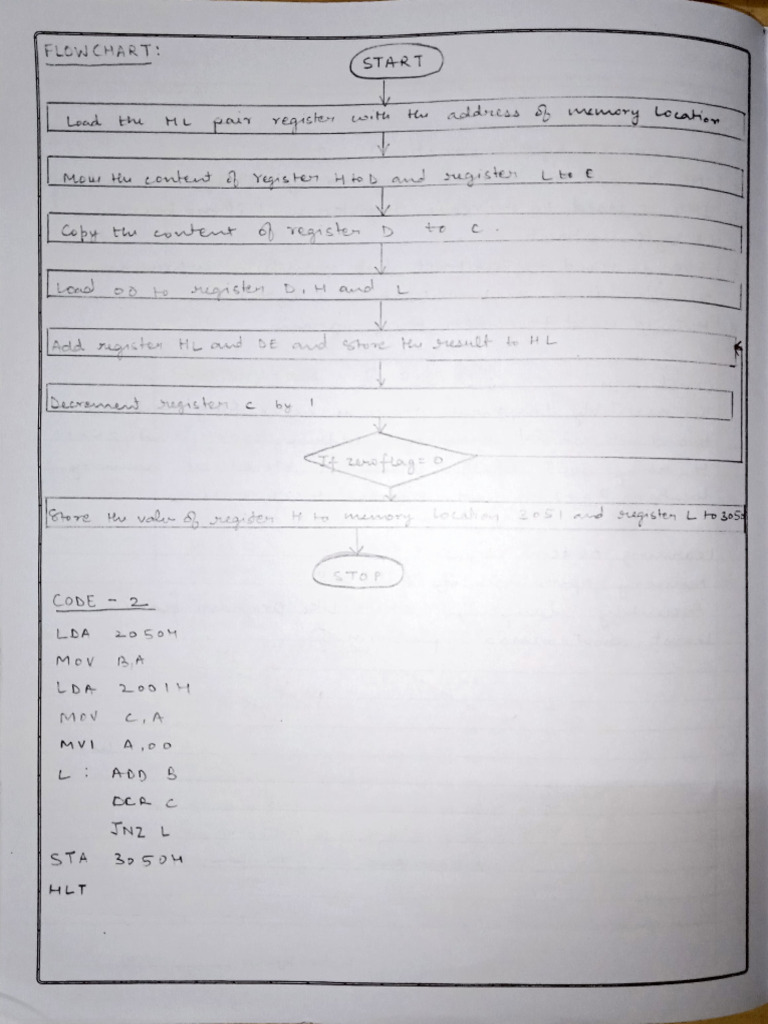 FLOWCHART:
START
Load the HL pair register with the address of memory Location
Move the content of register H to D and register L to E
Copy the content of register D to C.
Load 00 to register D, H and L
Add register HL and DE and store the result to HL
Decrement register C by 1
If zero flag = 0
Store the value of register H to memory location 3051 and register L to 3050
STOP
CODE - 2
LDA 2050H
MOV B,A
LDA 2001H
MOV C,A
MVI A,00
L : ADD B
DCR C
JNZ L
STA 3050H
HLT